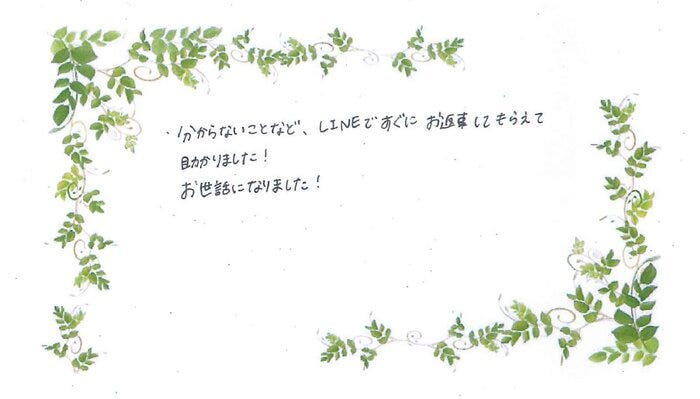 ・分からないことなど、LINEですぐに お返事してもらえて
助かりました！
お世話になりました！